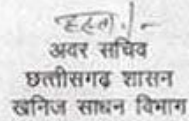 हस्ता./-
अवर सचिव
छत्तीसगढ़ शासन
खनिज साधन विभाग